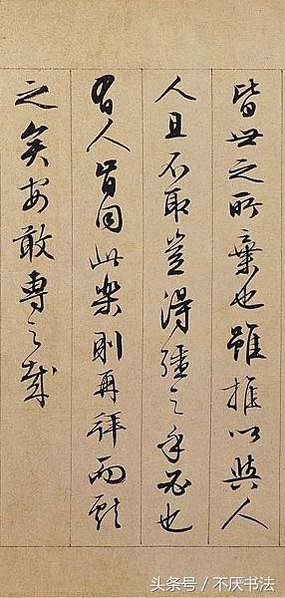 皆世之所棄也雖推以與人
人且不取豈得彊之乎必也
有人肯同此樂則再拜而獻
之矣安敢專之哉
头条号 / 不厌书法